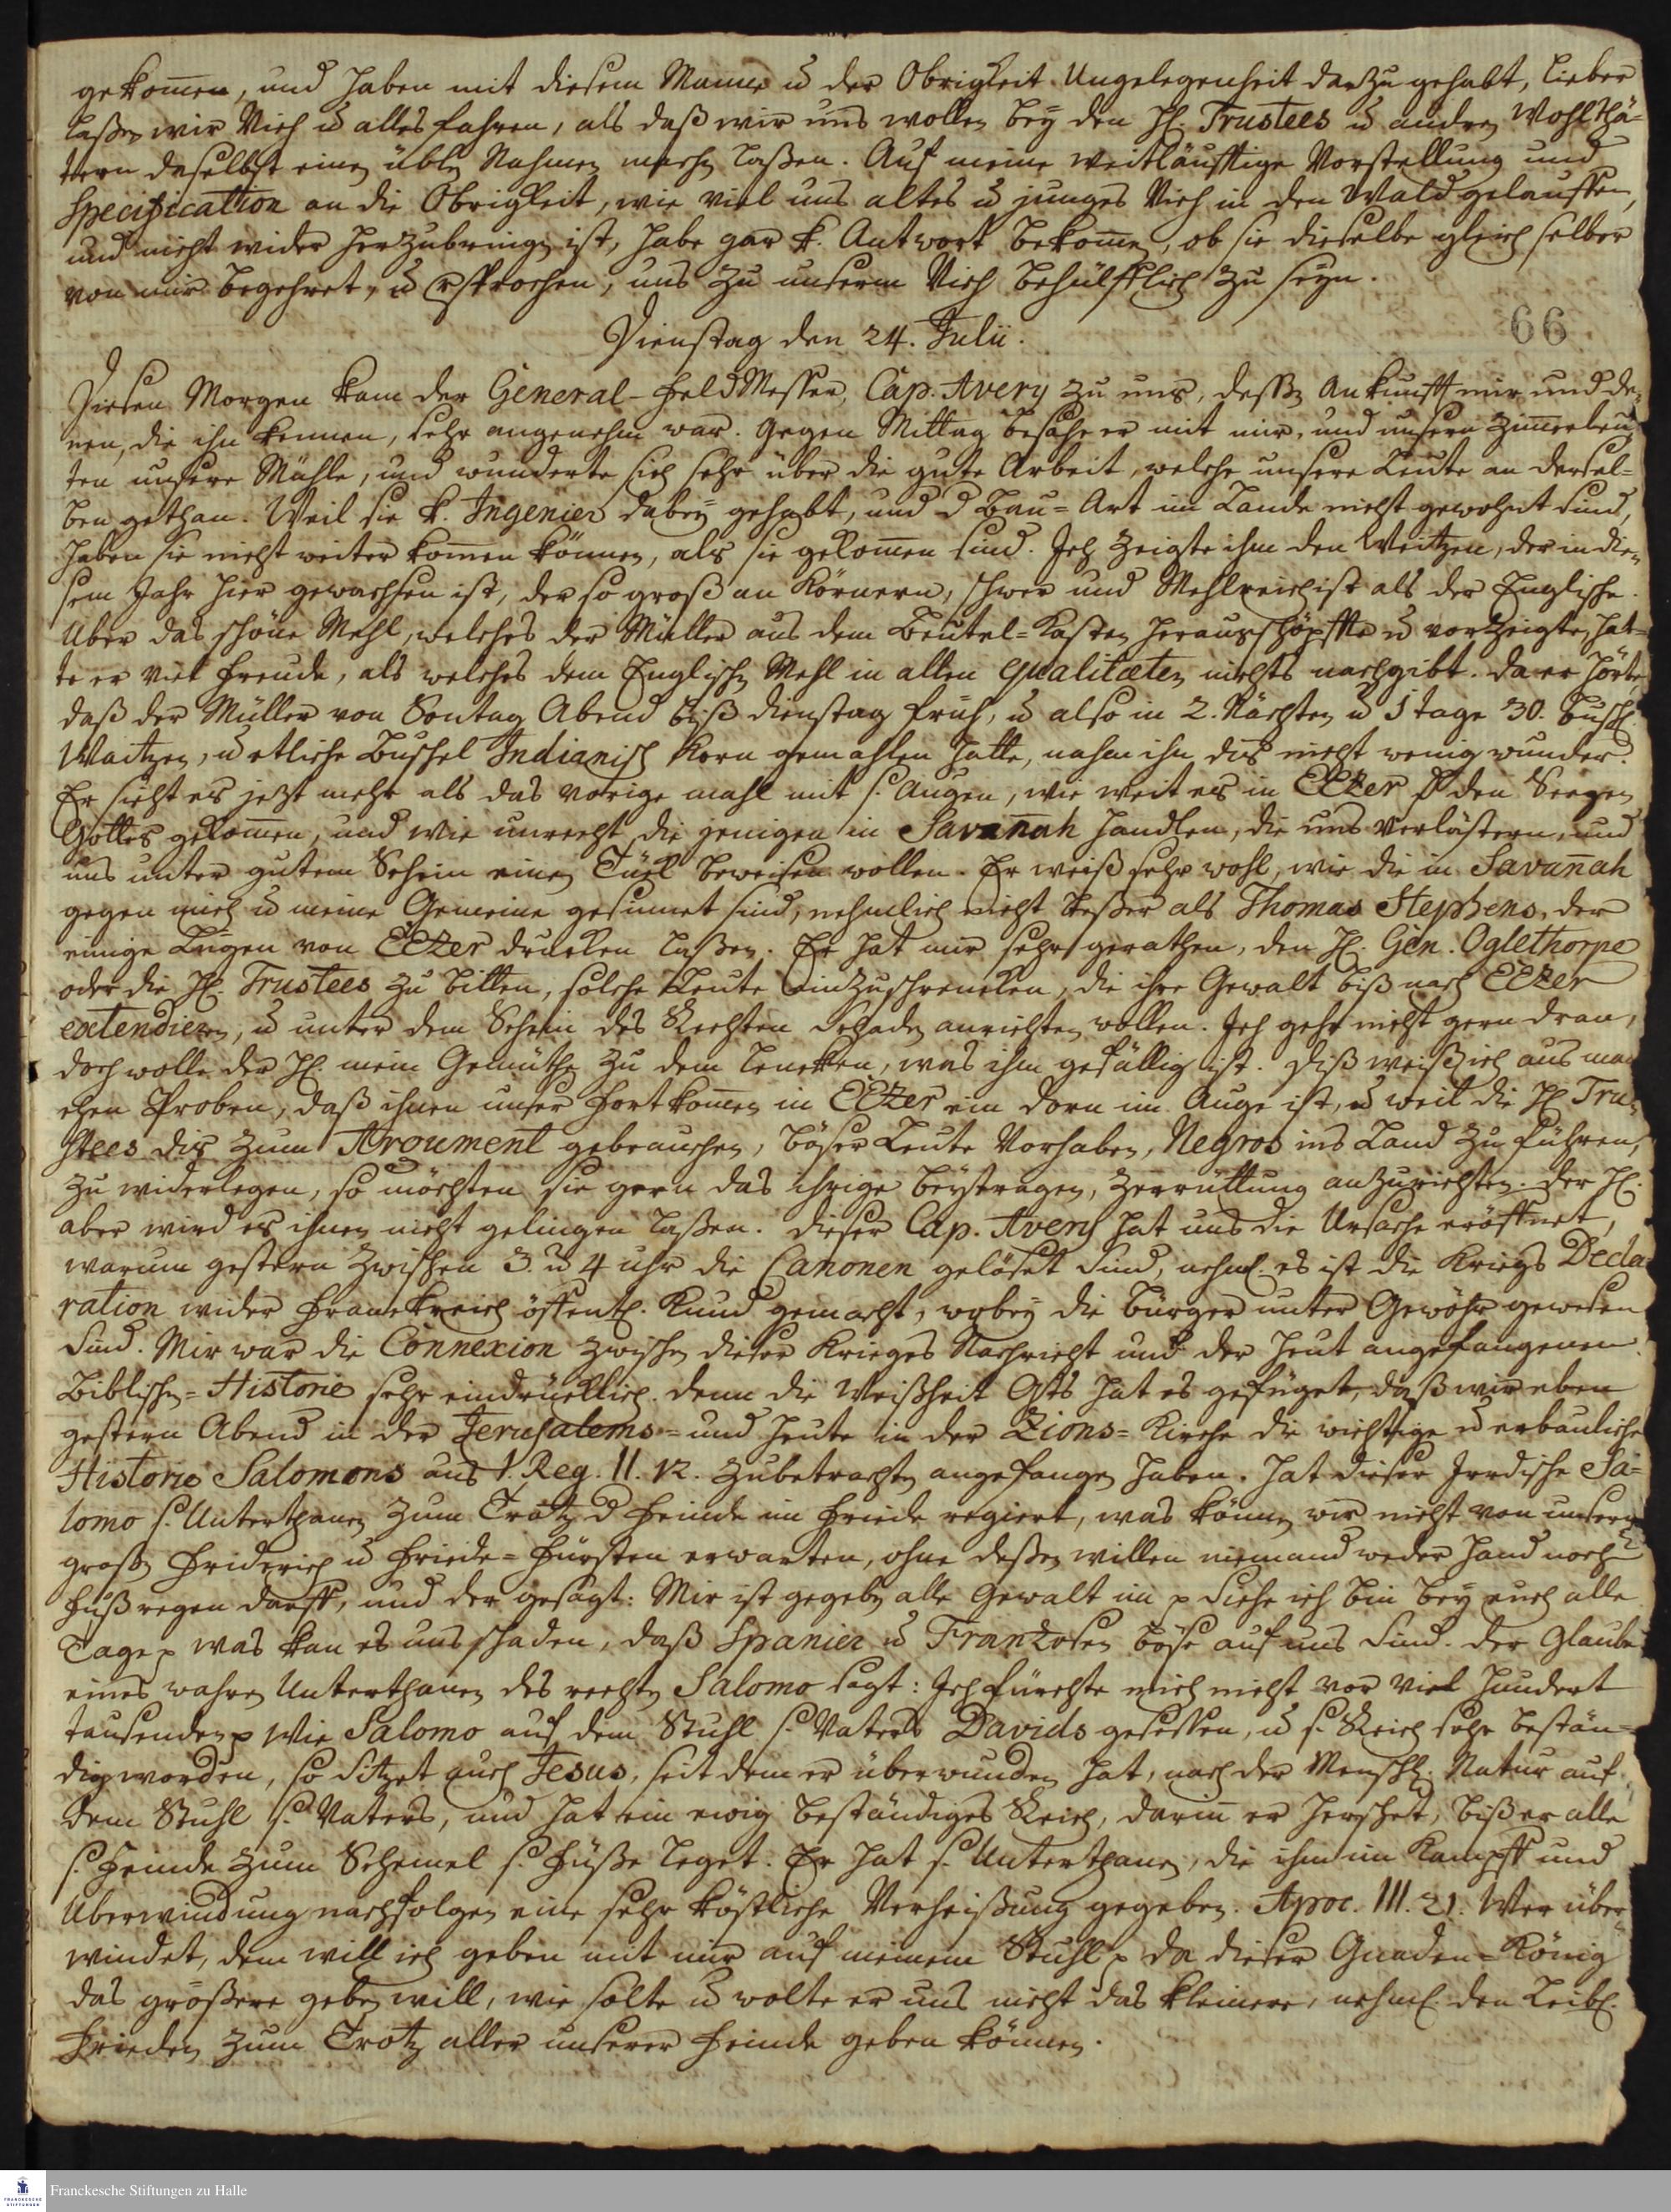 gekom̄en, und haben mit diesem Manne u. der Obrigkeit Ungelegenheit dazu gehabt, lieber
laßen wir Vieh u. alles fahren, als daß wir uns wollen bey den H. Trustees u. andern Wohlthä=
tern daselbst einen übln Nahmen machen laßen. Auf meine weitläuftige Vorstellung und
Specification an die Obrigkeit, wie viel uns altes u. junges Vieh in den Wald gelauffen,
und nicht wider herzubringen ist, habe gar k. Antwort bekom̄en, ob sie dieselbe gleich selber
von mir begehret, u. versprochen, uns zu unserm Vieh behülfflich zu seyn.
66
Dienstag den 24. Julii.
Diesen Morgen kam der General-FeldMesser, Cap. Avery zu uns, deßen Ankunfft mir und de=
nen, die ihn kennen, sehr angenehm war. Gegen Mittag besahe er mit mir, und unsern Zim̄erleu=
ten unsere Mühle, und wunderte sich sehr über die gute Arbeit, welche unsere Leute an dersel=
ben gethan. Weil sie k. Ingenier dabey gehabt, und d Bau=Art im Lande nicht gewohnt sind,
haben sie nicht weiter kom̄en können, als sie gekom̄en sind. Ich zeigte ihm den Weitzen, der in die=
sem Jahr hier gewachsen ist, der so groß an Körnern, schwer und Mehlreich ist als der Englische.
Uber das schöne Mehl, welches der Müller aus dem Beutel=Kasten herausschöpffte u. vorzeigte, hat=
te er viel Freude, als welches dem Englischen Mehl in allen qualitæten nichts nachgibt. Da er hörte,
daß der Müller von Sontag Abend biß Dienstag früh, u. also in 2. Nächten u. 1 Tage 30. Busch.
Waitzen, u. etliche Buschel Indianisch Korn gemahlen hatte, nahm ihn dis nicht wenig wunder.
Er sieht es jezt mehr als das vorige mahl mit s. Augen, wie weit es in EEzer durch den Seegen
Gottes gekom̄en, und wie unrecht die jenigen in Savan̄ah handlen, die uns verlästern, und
uns unter gutem Schein einen Tück beweisen wollen. Er weiß sehr wohl, wie die in Savan̄ah
gegen mich u. meine Gemeine gesinnet sind, nehmlich nicht beßer als Thomas Stephens, der
einige Lügen von EEzer drucken laßen. Er hat mir sehr gerathen, den H. Gen. Oglethorpe
oder die H. Trustees zu bitten, solche Leute einzuschrencken, die ihre Gewalt biß nach EEzer
extendiren, u. unter dem Schein des Rechten Schaden anrichten wollen. Ich gehe nicht gern dran,
doch wolle der H. mein Gemüthe zu dem lencken, was ihm gefällig ist. Diß weiß ich aus man=
chen Proben, daß ihnen unser Fortkom̄en in EEzer ein Dorn im Auge ist, u. weil die H. Tru=
stees dis zum Aroument gebrauchen, böser Leute Vorhaben, Negros ins Land zu führen,
zu widerlegen, so möchten sie gern das ihrige beytragen, Zerrüttung anzurichten. Der H.
aber wird es ihnen nicht gelingen laßen. Dieser Cap. Avery hat uns die Ursache eröffnet,
warum gestern zwischen 3. u. 4 Uhr die Canonen gelöset sind, nehml. es ist die Kriegs Decla=
ration wider Franckreich öffentl. kund gemacht, wobey die Bürger unter Gewöhr gewesen
sind. Mir war die Connexion zwischen dieser Krieges Nachricht und der heut angefangenen
Biblischen=Historie sehr eindrücklich. denn die Weißheit Gtts hat es gefüget, daß wir eben
gestern Abend in der Jerusalems= und heute in der Zions=Kirche die wichtige u. erbauliche
Historie Salomons aus 1. Reg. II. 12. zubetrachten angefangen haben. Hat dieser Irrdische Sa=
lomo s. Unterthanen zum Trotz d Feinde im Friede regiert, was können wir nicht von unserm
großen Friderich u. Friede=Fürsten erwarten, ohne deßen willen niemand weder Hand noch
Fuß regen darff, und der gesagt: Mir ist gegeben alle Gewalt im p Siehe ich bin bey euch alle
Tage p was kan es uns schaden, daß Spanier u. Franzosen böse auf uns sind. Der Glaube
eines wahren Unterthanen des rechten Salomo sagt: Ich fürchte mich nicht vor viel hundert
tausenden p Wie Salomo auf dem Stuhl s. Vaters Davids gesessen, u. s. Reich sehr bestän=
dig worden, so sitzet auch Jesus, seit dem er überwunden hat, nach der Menschl. Natur auf
dem Stuhl s. Vaters, und hat ein ewig beständiges Reich, darin̄ er herschet, biß er alle
s. Feinde zum Schemel s. Füße leget. Er hat s. Unterthanen, die ihm im Kampff und
Uberwindung nachfolgen eine sehr köstliche Verheißung gegeben. Apoc. III. 21. Wer über=
windet, dem will ich geben mit mir auf meinem Stuhl p Da dieser Gnaden=König
das größere geben will, wie solte u. wolte er uns nicht das kleinere, nehml. den Leibl.
Frieden zum Trotz aller unserer Feinde geben können.
Franckesche Stiftungen zu Halle